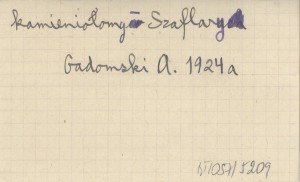 kamieniołomy - Szaflary
Gadomski A. 1924a
KT/057/5209